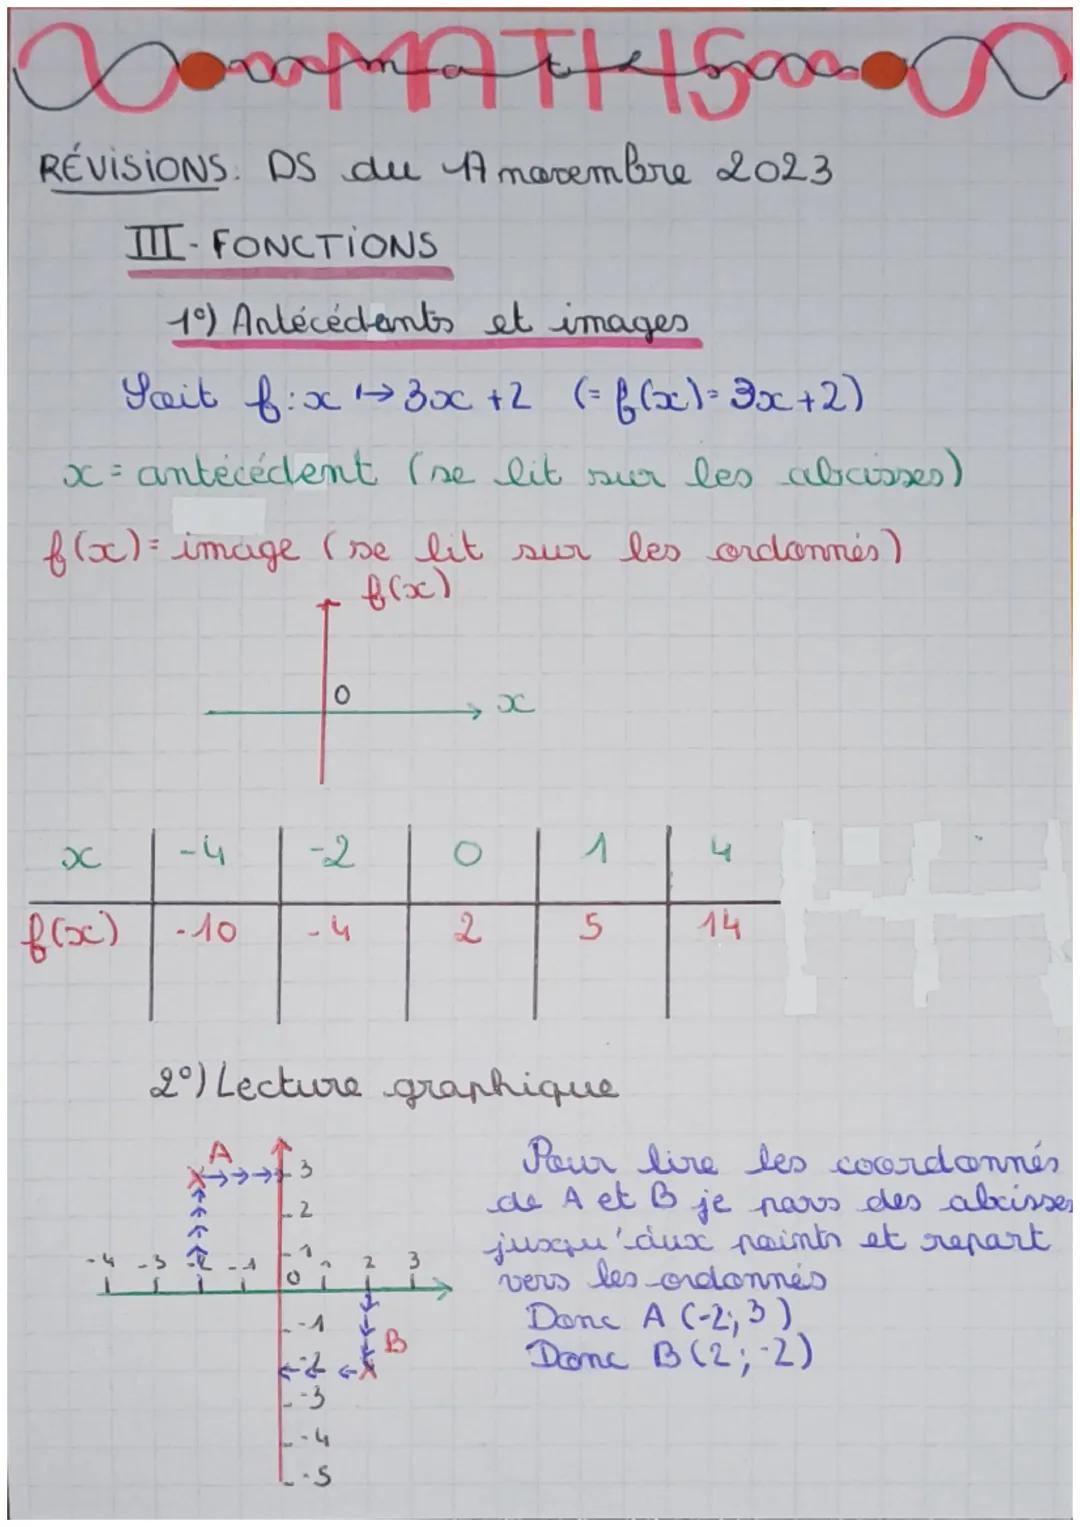 MATHS
maths
RÉVISIONS: DS du 17 novembre 2023
III - FONCTIONS
1°) Antécédants et images
Soit f: x ↦ 3x + 2 (= f(x) = 3x + 2)
x = antécédent (se lit sur les abcisses)
f(x) = image (se lit sur les ordonnés)
f(x)
0
x
x -4 -2 0 1 4
f(x) -10 -4 2 5 14
2°) Lecture graphique
A
3
2
1
-4 -3 -2 -1 0 1 2 3
-1
B
-2
-3
-4
-5
Pour lire les coordonnés
de A et B je pars des abcisses
jusqu'aux points et repart
vers les ordonnés
Donc A (-2; 3)
Donc B (2; -2)